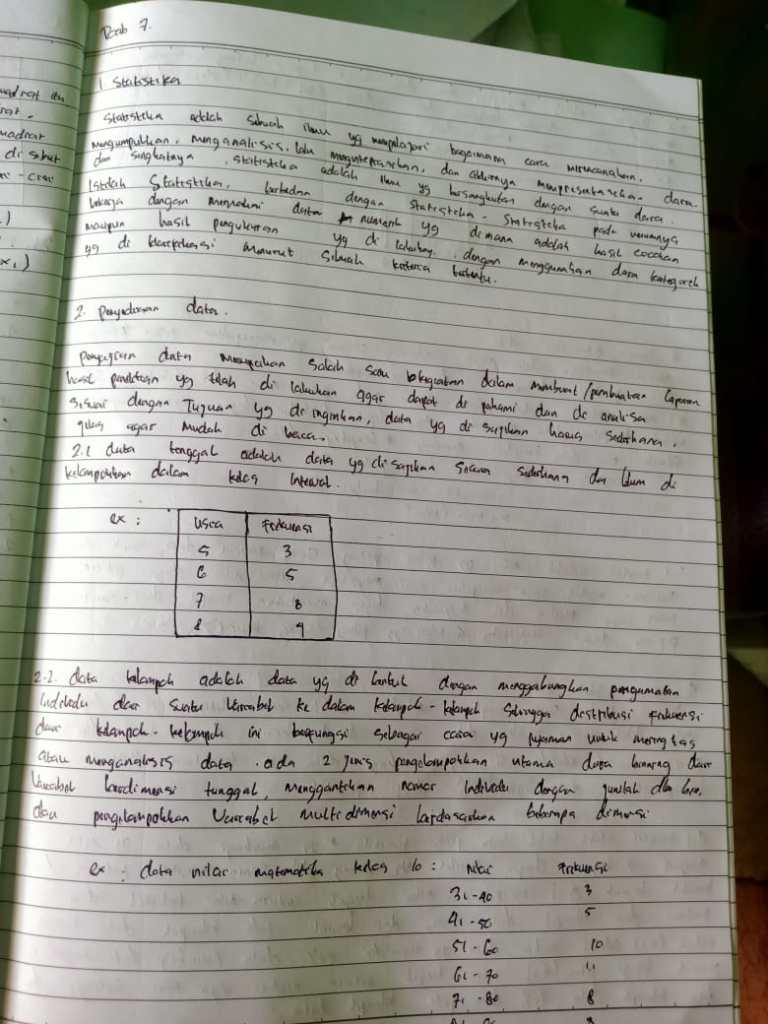 uadrat
rat.
uadrat
di sebut
x₁)
Bab 7.
1. Statistika
Statistika adalah sebuah ilmu yg mempelajari bagaimana cara merencanakan,
mengumpulkan, menganalisis, lalu dan akhirnya mempresentasikan data.
dan singkatnya, statistika adalah ilmu yg bersangkutan dengan suatu data.
Istilah Statistika, berbeda dengan Statistika - Statistika pada umumnya
bekerja dengan data numerik yg dimana adalah hasil cacahan
maupun hasil pengukuran yg di dengan menggunakan data kategorik
yg di menurut sebuah kriteria tertentu.
2. data.
data merupakan salah satu dalam membuat/pembuatan laporan
hasil penelitian yg telah di lakukan agar dapat di pahami dan di analisa
sesuai dengan Tujuan yg di inginkan, data yg di sajikan harus sederhana,
jelas agar mudah di baca.
2.1 data tunggal adalah data yg di sajikan secara sederhana dan blum di
kelompokkan dalam kelas interval.
ex : Usia Frekuensi
5 3
6 5
7 8
8 4
2.2. data kelompok adalah data yg di bentuk dengan menggabungkan pengamatan
individu dari suatu Variabel ke dalam kelompok - kelompok sehingga distribusi frekuensi
dari kelompok - kelompok ini berfungsi sebagai cara yg untuk meringkas
atau menganalisis data. ada 2 jenis pengelompokkan utama data dari
Variabel berdimensi tunggal, menggantikan nomor individu dengan jumlah
dan pengelompokkan Variabel multidimensi berdasarkan beberapa dimensi
ex : data nilai matematika kelas 10 : Nilai Frekuensi
31 - 40 3
41 - 50 5
51 - 60 10
61 - 70 11
71 - 80 8